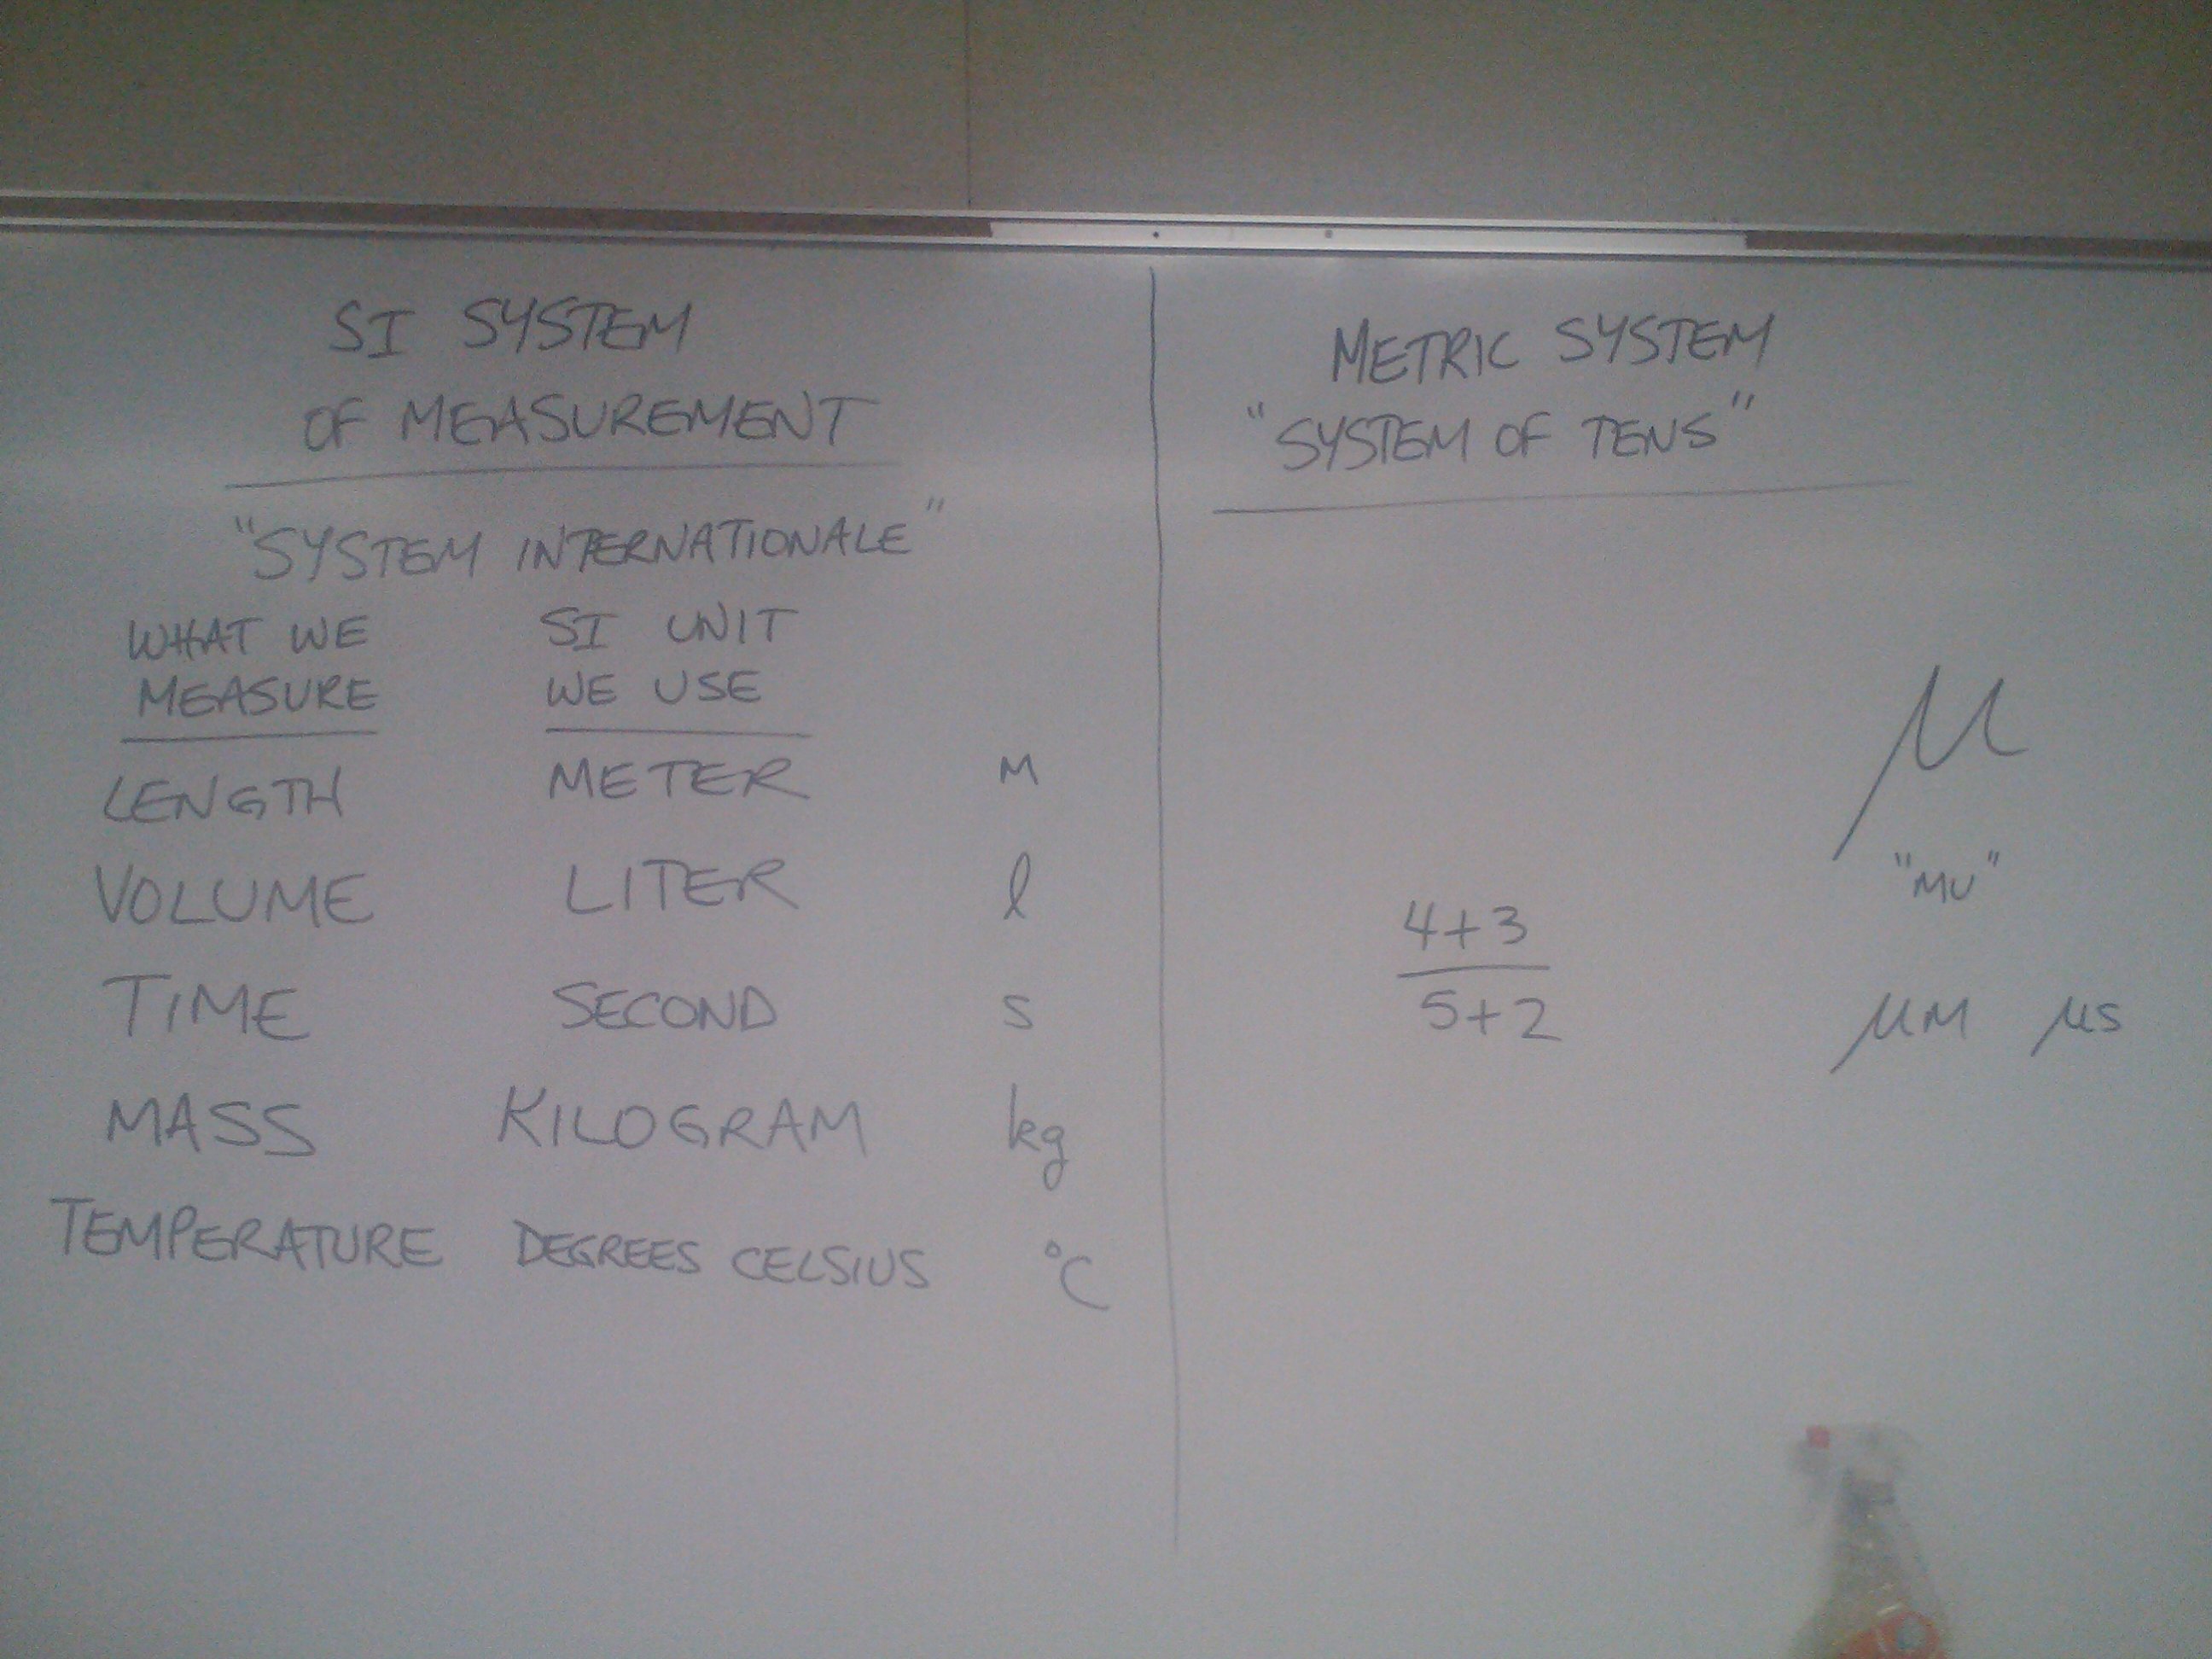 SI SYSTEM
OF MEASUREMENT
"SYSTEM INTERNATIONALE"
WHAT WE SI UNIT
MEASURE WE USE
LENGTH METER M
VOLUME LITER l
TIME SECOND s
MASS KILOGRAM kg
TEMPERATURE DEGREES CELSIUS °C
METRIC SYSTEM
"SYSTEM OF TENS"
μ
"MU"
4+3
5+2
μM μs